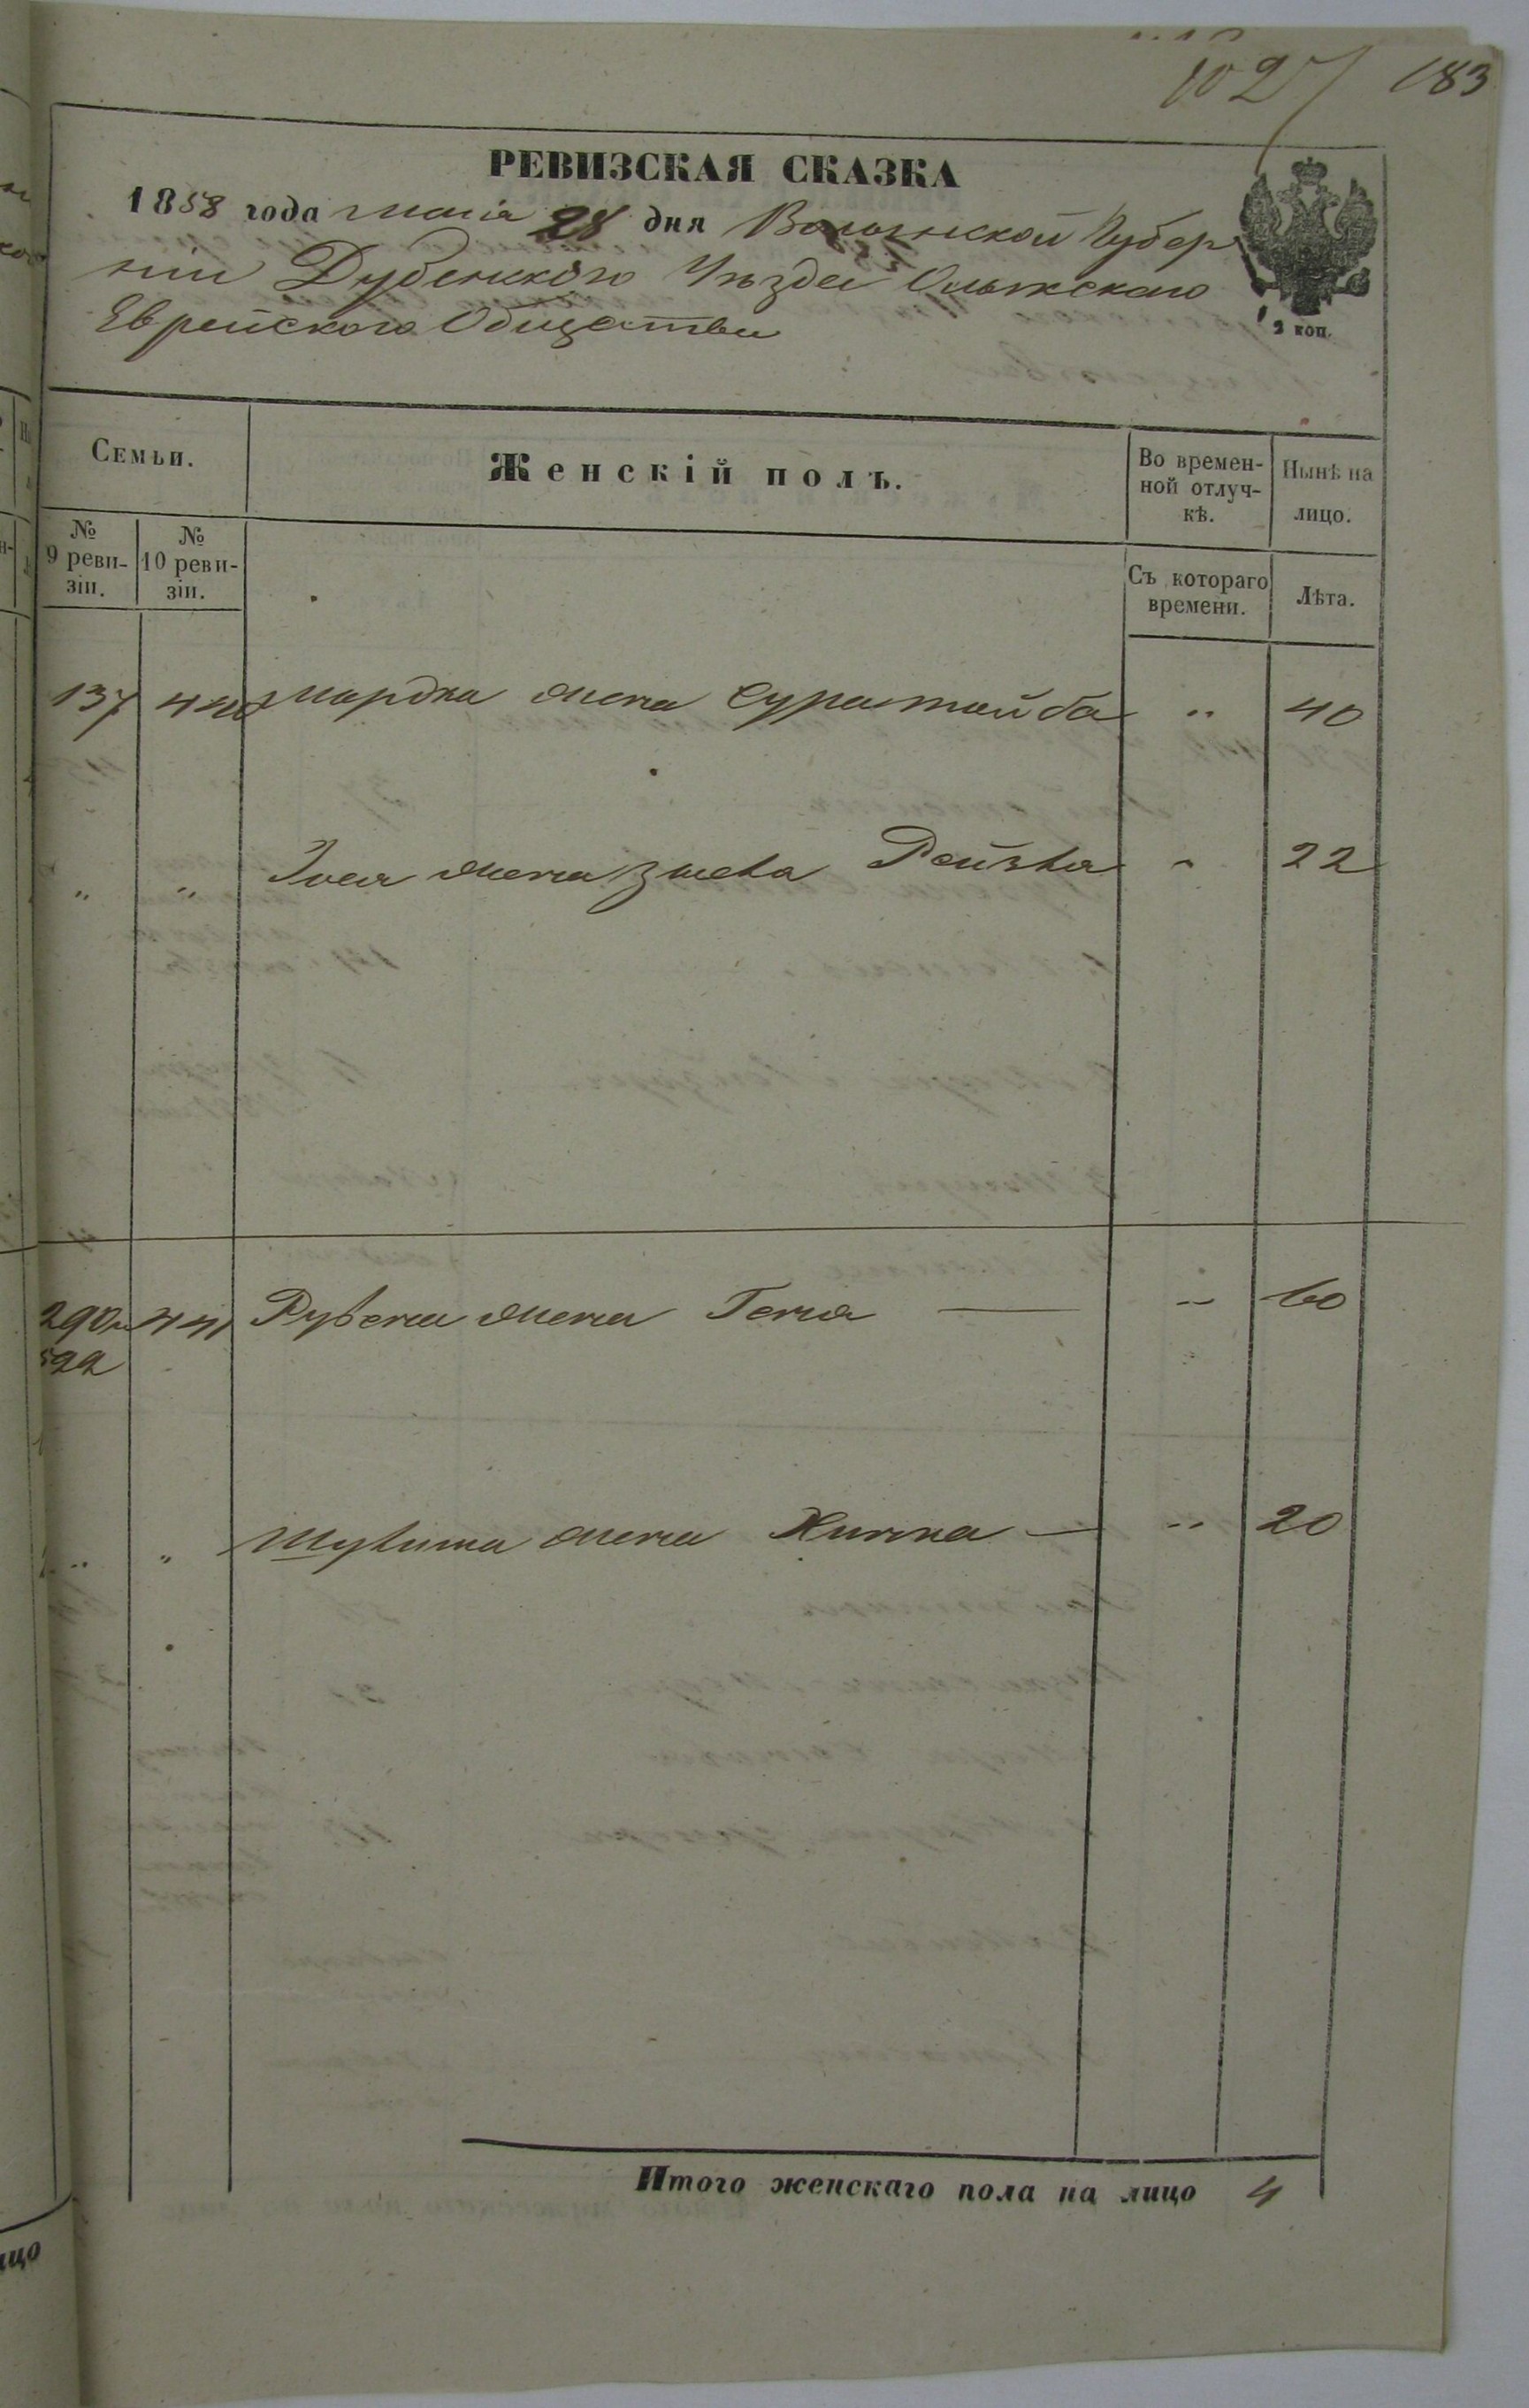 1027 183
РЕВИЗСКАЯ СКАЗКА
1858 года маія 28 дня Волынской Губер
ніи Дубенского Уѣзда Олыкскаго
Еврейского Общества
2 коп.
Семьи.
Женскій полъ.
Во времен-
ной отлуч-
кѣ.
Нынѣ на
лицо.
№
9 реви-
зіи.
№
10 реви-
зіи.
Съ котораго
времени.
Лѣта.
137 440 Мордка жена Сура тойба " 40
" " Іося жена Злата Рейзля " 22
290 441 Рувена жена Геня — " 60
522
" " Шулима жена Хинка — " 20
Итого женскаго пола на лицо 4